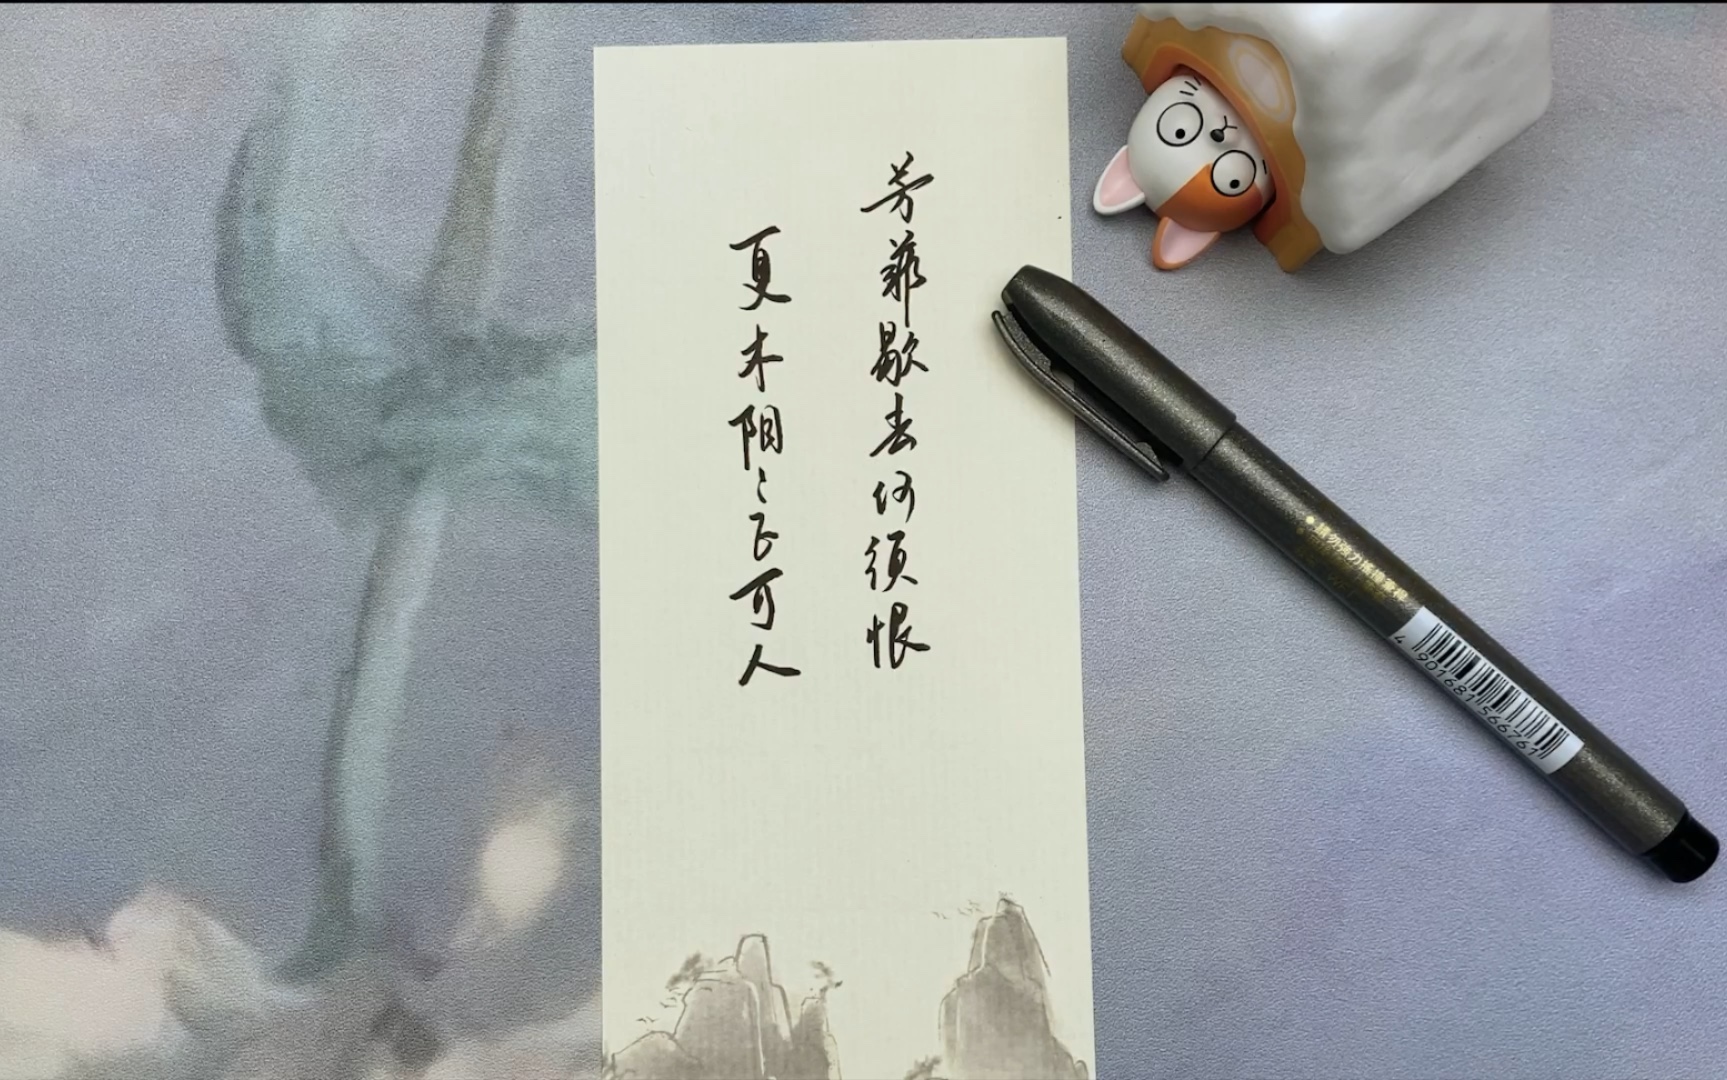 芳菲歇去何须恨
夏木阴〻正可人
4 901681 566761